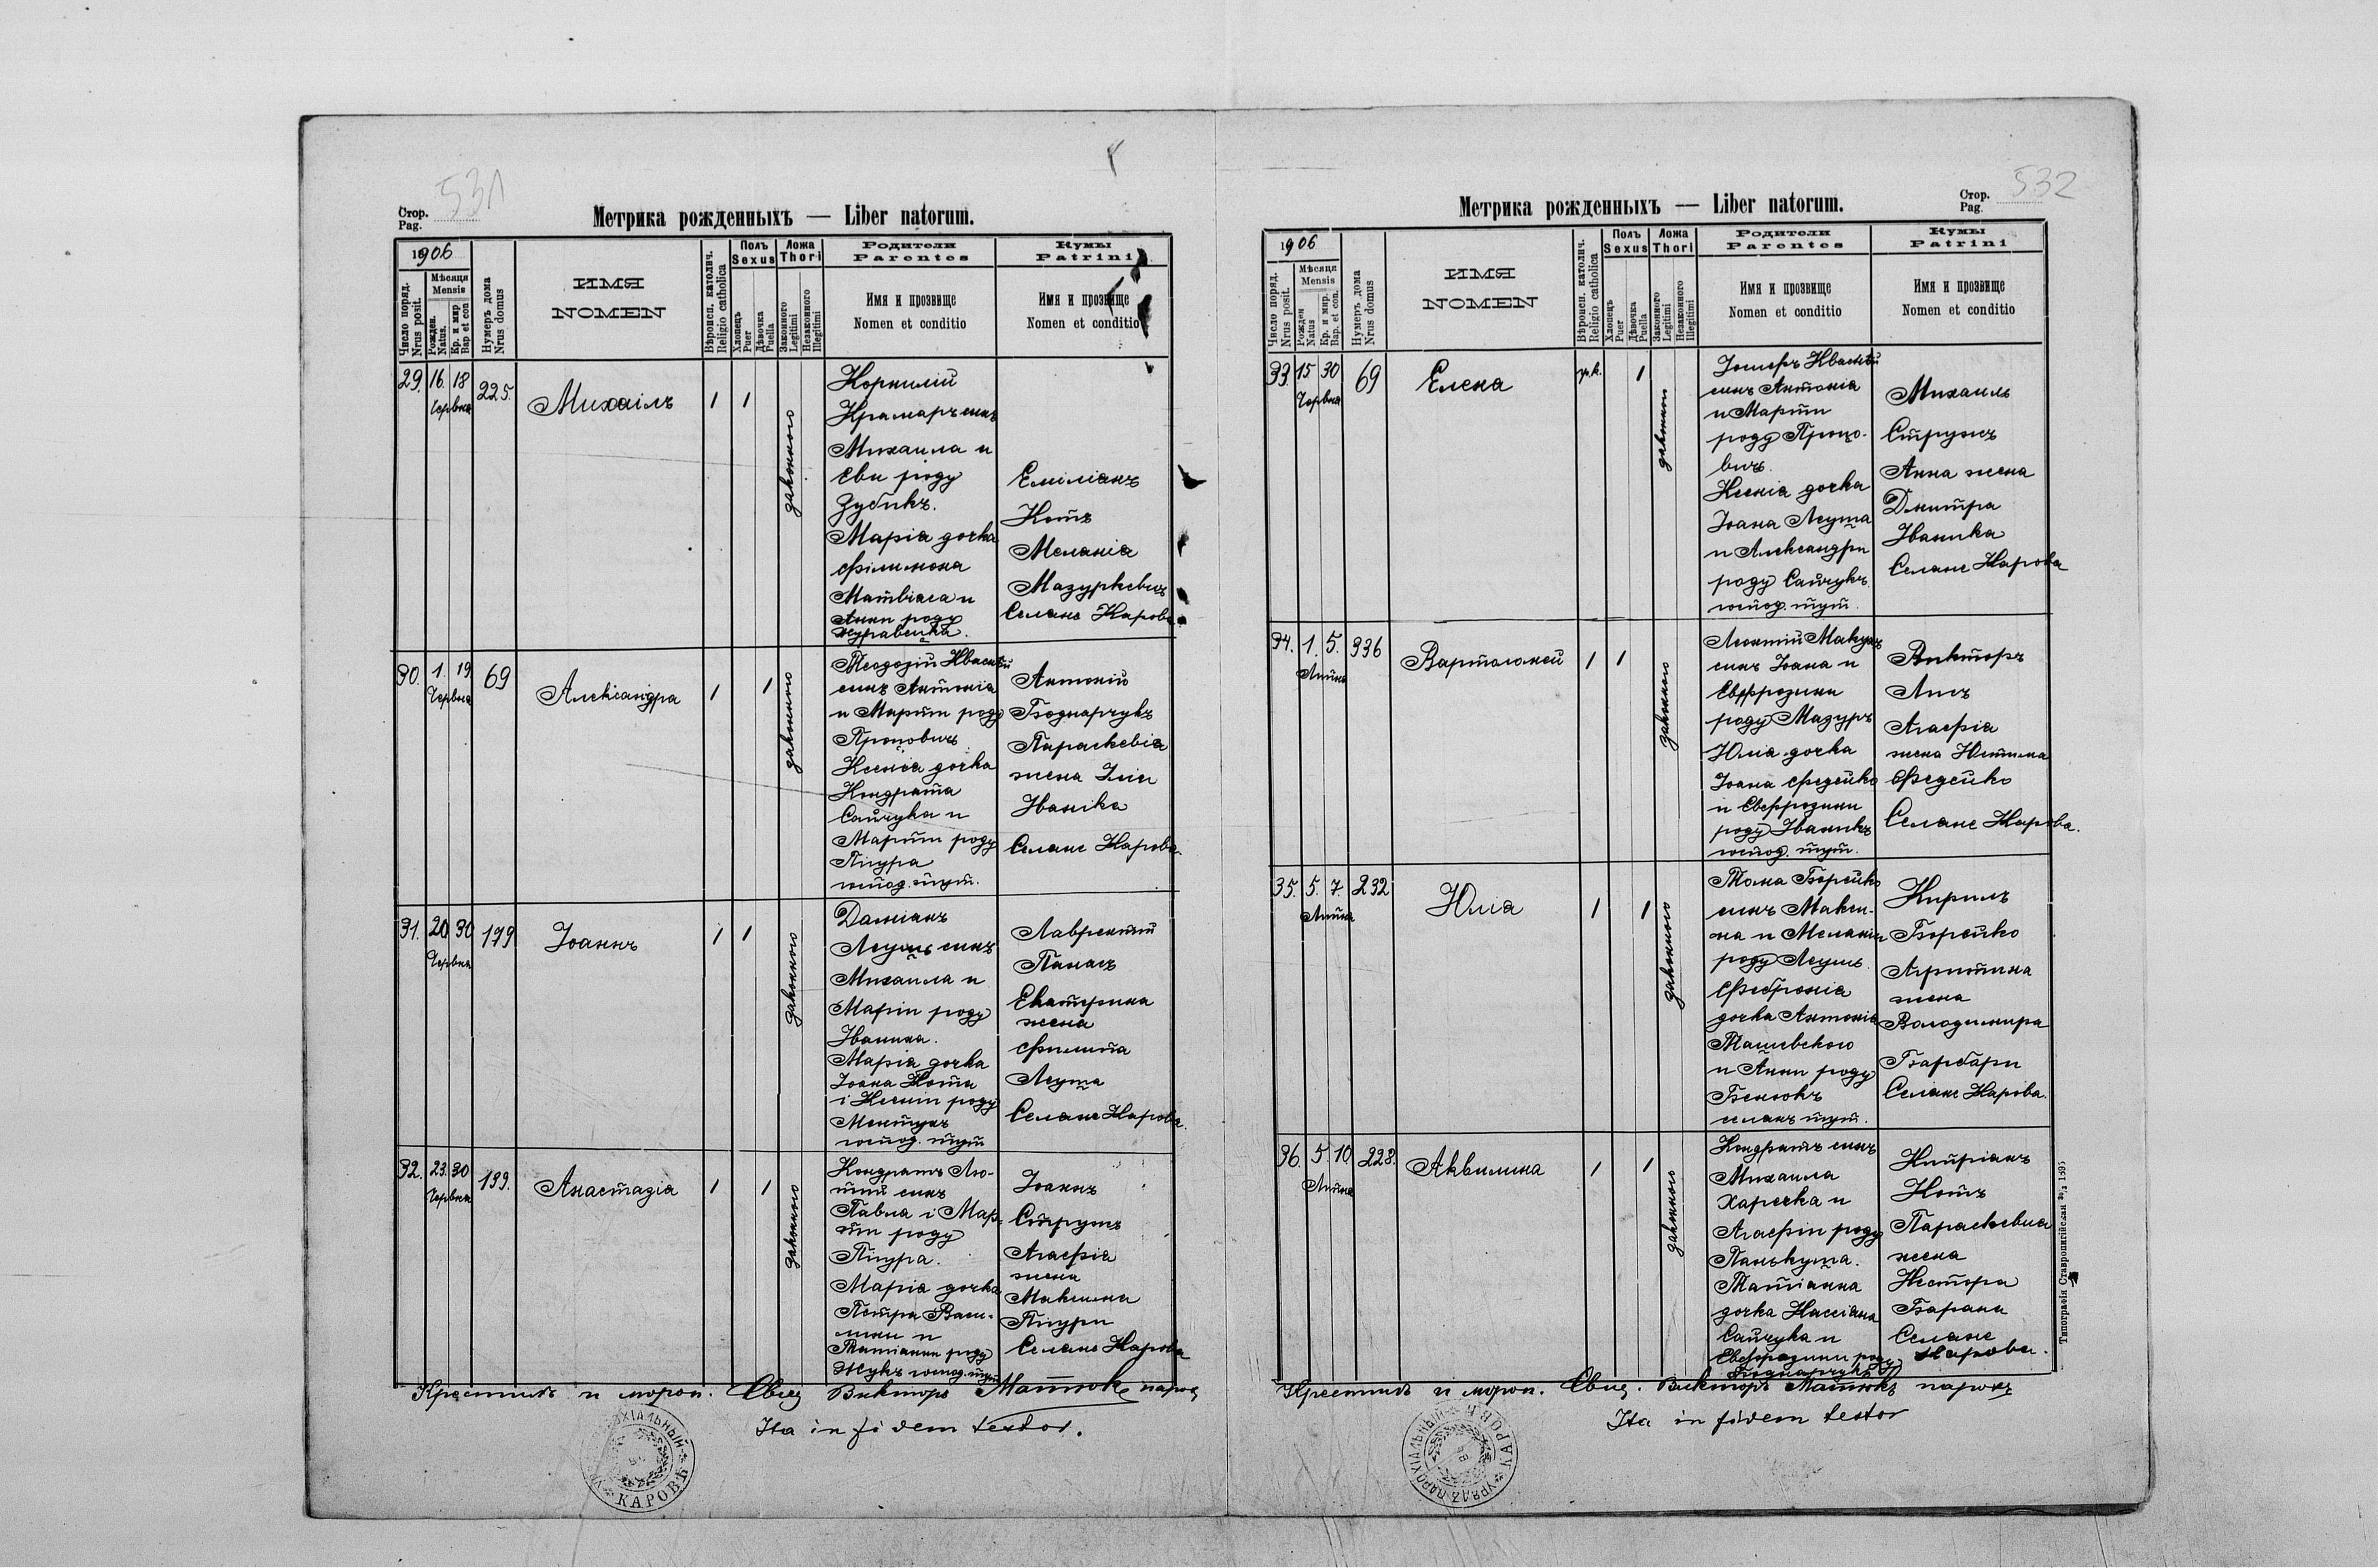 531
Стор.
Pag.
Метрика рожденныхъ — Liber natorum.
1906
Число поряд.
Nrus posit.
Мѣсяця
Mensis
Рожден.
Natus.
Кр. и мир
Bap et con
Нумеръ дома
Nrus domus
ИМЯ
NOMEN
Вѣроисп. католич.
Religio catholica
Полъ
Sexus
Хлопецъ
Puer
Дѣвочка
Puella
Ложа
Thori
Законного
Legitimi
Незаконного
Illegitimi
Родители
Parentes
Имя и прозвище
Nomen et conditio
Кумы
Patrini
Имя и прозвище
Nomen et conditio
29. 16. 18 225.
Червня
Михаілъ
1 1
законного
Корнилій
Крамаръ синъ
Михаила и
Еви роду
Зубикъ.
Марія дочка
Филимона
Матвіаса и
Анни роду
Журавецка.
Емиліанъ
Котъ
Меланія
Мазуркевич
Селяне Карова
30. 1. 19 69
Червня
Александра
1 1
законного
Теодозій Кваснѣй
синъ Антонія
и Марти роду
Процовичъ
Ксенія дочка
Кондрата
Сайчука и
Марти роду
Піцура
господ. тут.
Антоній
Боднарчукъ
Параскевія
жена Іліи
Іваніка
Селяне Карова.
31. 20 30 179
Червня
Іоаннъ
1 1
законного
Даміанъ
синъ
Михаила и
Маріи роду
Іваника.
Марія дочка
Іоана Коти
і Ксеніи роду
господ. тут
Лаврентій
Панасъ
Екатерина
жена
Филипа
Леута
Селяне Карова.
32. 23. 30 199.
Червня
Анастазія
1 1
законного
Кондратъ Лю-
тий синъ
Павла і Мар-
ти роду
Піцура.
Марія дочка
Петра Васи-
лики и
Татіанни роду
Жукъ господ. тут
Іоаннъ
Струтъ
Агафія
жена
Максима
Піцури
Селяне Карова
Крестилъ и мѵроп. Свящ Викторъ Матюкъ парох
Ita in fidem testor.
КАРОВѢ
532
Стор.
Pag.
Метрика рожденныхъ — Liber natorum.
1906
Число поряд.
Nrus posit.
Мѣсяця
Mensis
Рожден
Natus
Кр. и мир.
Bap. et con.
Нумеръ дома
Nrus domus
ИМЯ
NOMEN
Вѣроисп. католич.
Religio catholica
Полъ
Sexus
Хлопецъ
Puer
Дѣвочка
Puella
Ложа
Thori
Законного
Legitimi
Незаконного
Illegitimi
Родители
Parentes
Имя и прозвище
Nomen et conditio
Кумы
Patrini
Имя и прозвище
Nomen et conditio
33. 15 30 69
Червня
Елена
гр.к. 1
законного
Іосифъ Кваснѣй
синъ Антонія
и Марти
роду Процо-
вичъ.
Ксенія дочка
Іоана Леута
и Александри
роду Сайчукъ
господ. тут.
Михаилъ
Струтъ
Анна жена
Дмитра
Іваника
Селяне Карова
34. 1. 5. 336
Липня
Вартоломей
1 1
законного
Леонтій Макухъ
синъ Іоана и
Евфрозини
роду Мазуръ
Юлія дочка
Іоана Федейко
и Евфрозини
роду Іваникъ
господ. тут.
Викторъ
Лисъ
Агафія
жена Юстина
Федейко
Селяне Карова.
35. 5. 7. 232
Липня
Юлія
1 1
законного
Тома Борейко
синъ Макси-
ма и Меланіи
роду
Февронія
дочка Антонія
Ташевского
и Анни роду
Бенюкъ
селянъ тут.
Кирилъ
Борейко
Агрипина
жена
Володимира
Барбари
Селяне Карова.
36. 5. 10 228.
Липня
Аквилина
1 1
законного
Кондратъ синъ
Михаила
Харечка и
Агафіи роду
Панькута.
Татіанна
дочка Кассіана
Сайчука и
Евфрозини роду
Боднарчукъ
Кипріанъ
Котъ
Параскевиа
жена
Нестора
Барана
Селяне
Карова.
Крестилъ и мѵроп. Свящ. Викторъ Матюкъ парохъ
Ita in fidem testor
УРЯДЪ ПАРОХІАЛЬНЫЙ
КАРОВѢ